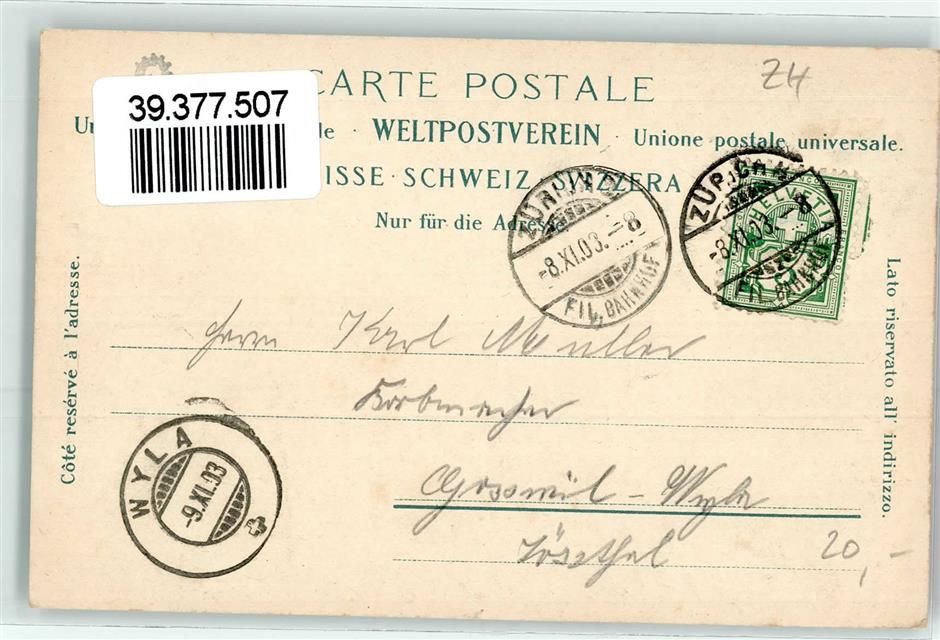 Z4
CARTE POSTALE
39.377.507
Un le · WELTPOSTVEREIN · Unione postale universale.
ISSE · SCHWEIZ · SVIZZERA
Nur für die Adresse
ZÜRICH
-8.XI.03.-8
FIL. BAHNHOF
ZÜRICH
-8.XI.03.-8
FIL. BAHNHOF
HELVETIA
Côté resérvé à l'adresse.
Lato riservato all' indirizzo.
Herrn Karl Müller
Korbmacher
Gosswil - Wyla
Tössthal
20,-
WYLA
-9.XI.03